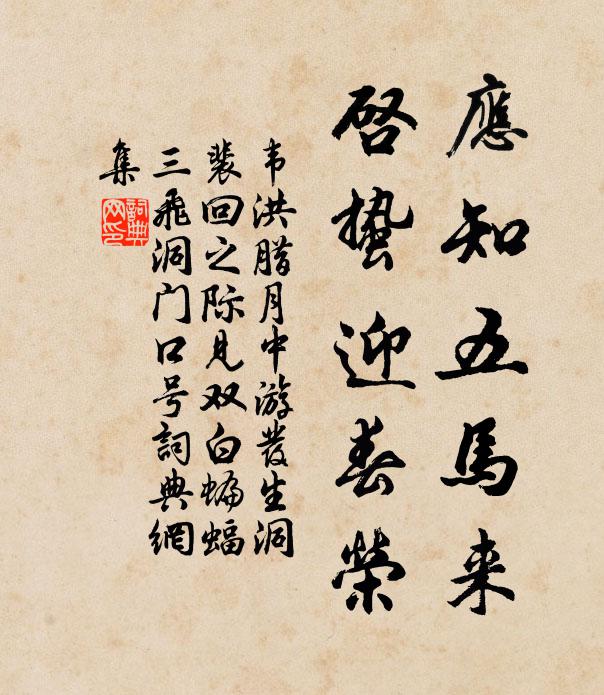 應知五馬来
啓蛰迎春榮
韦洪腊月中游發生洞
裴回之际见双白蝙蝠
三飛洞门口号詞典網
集
詞典
网印